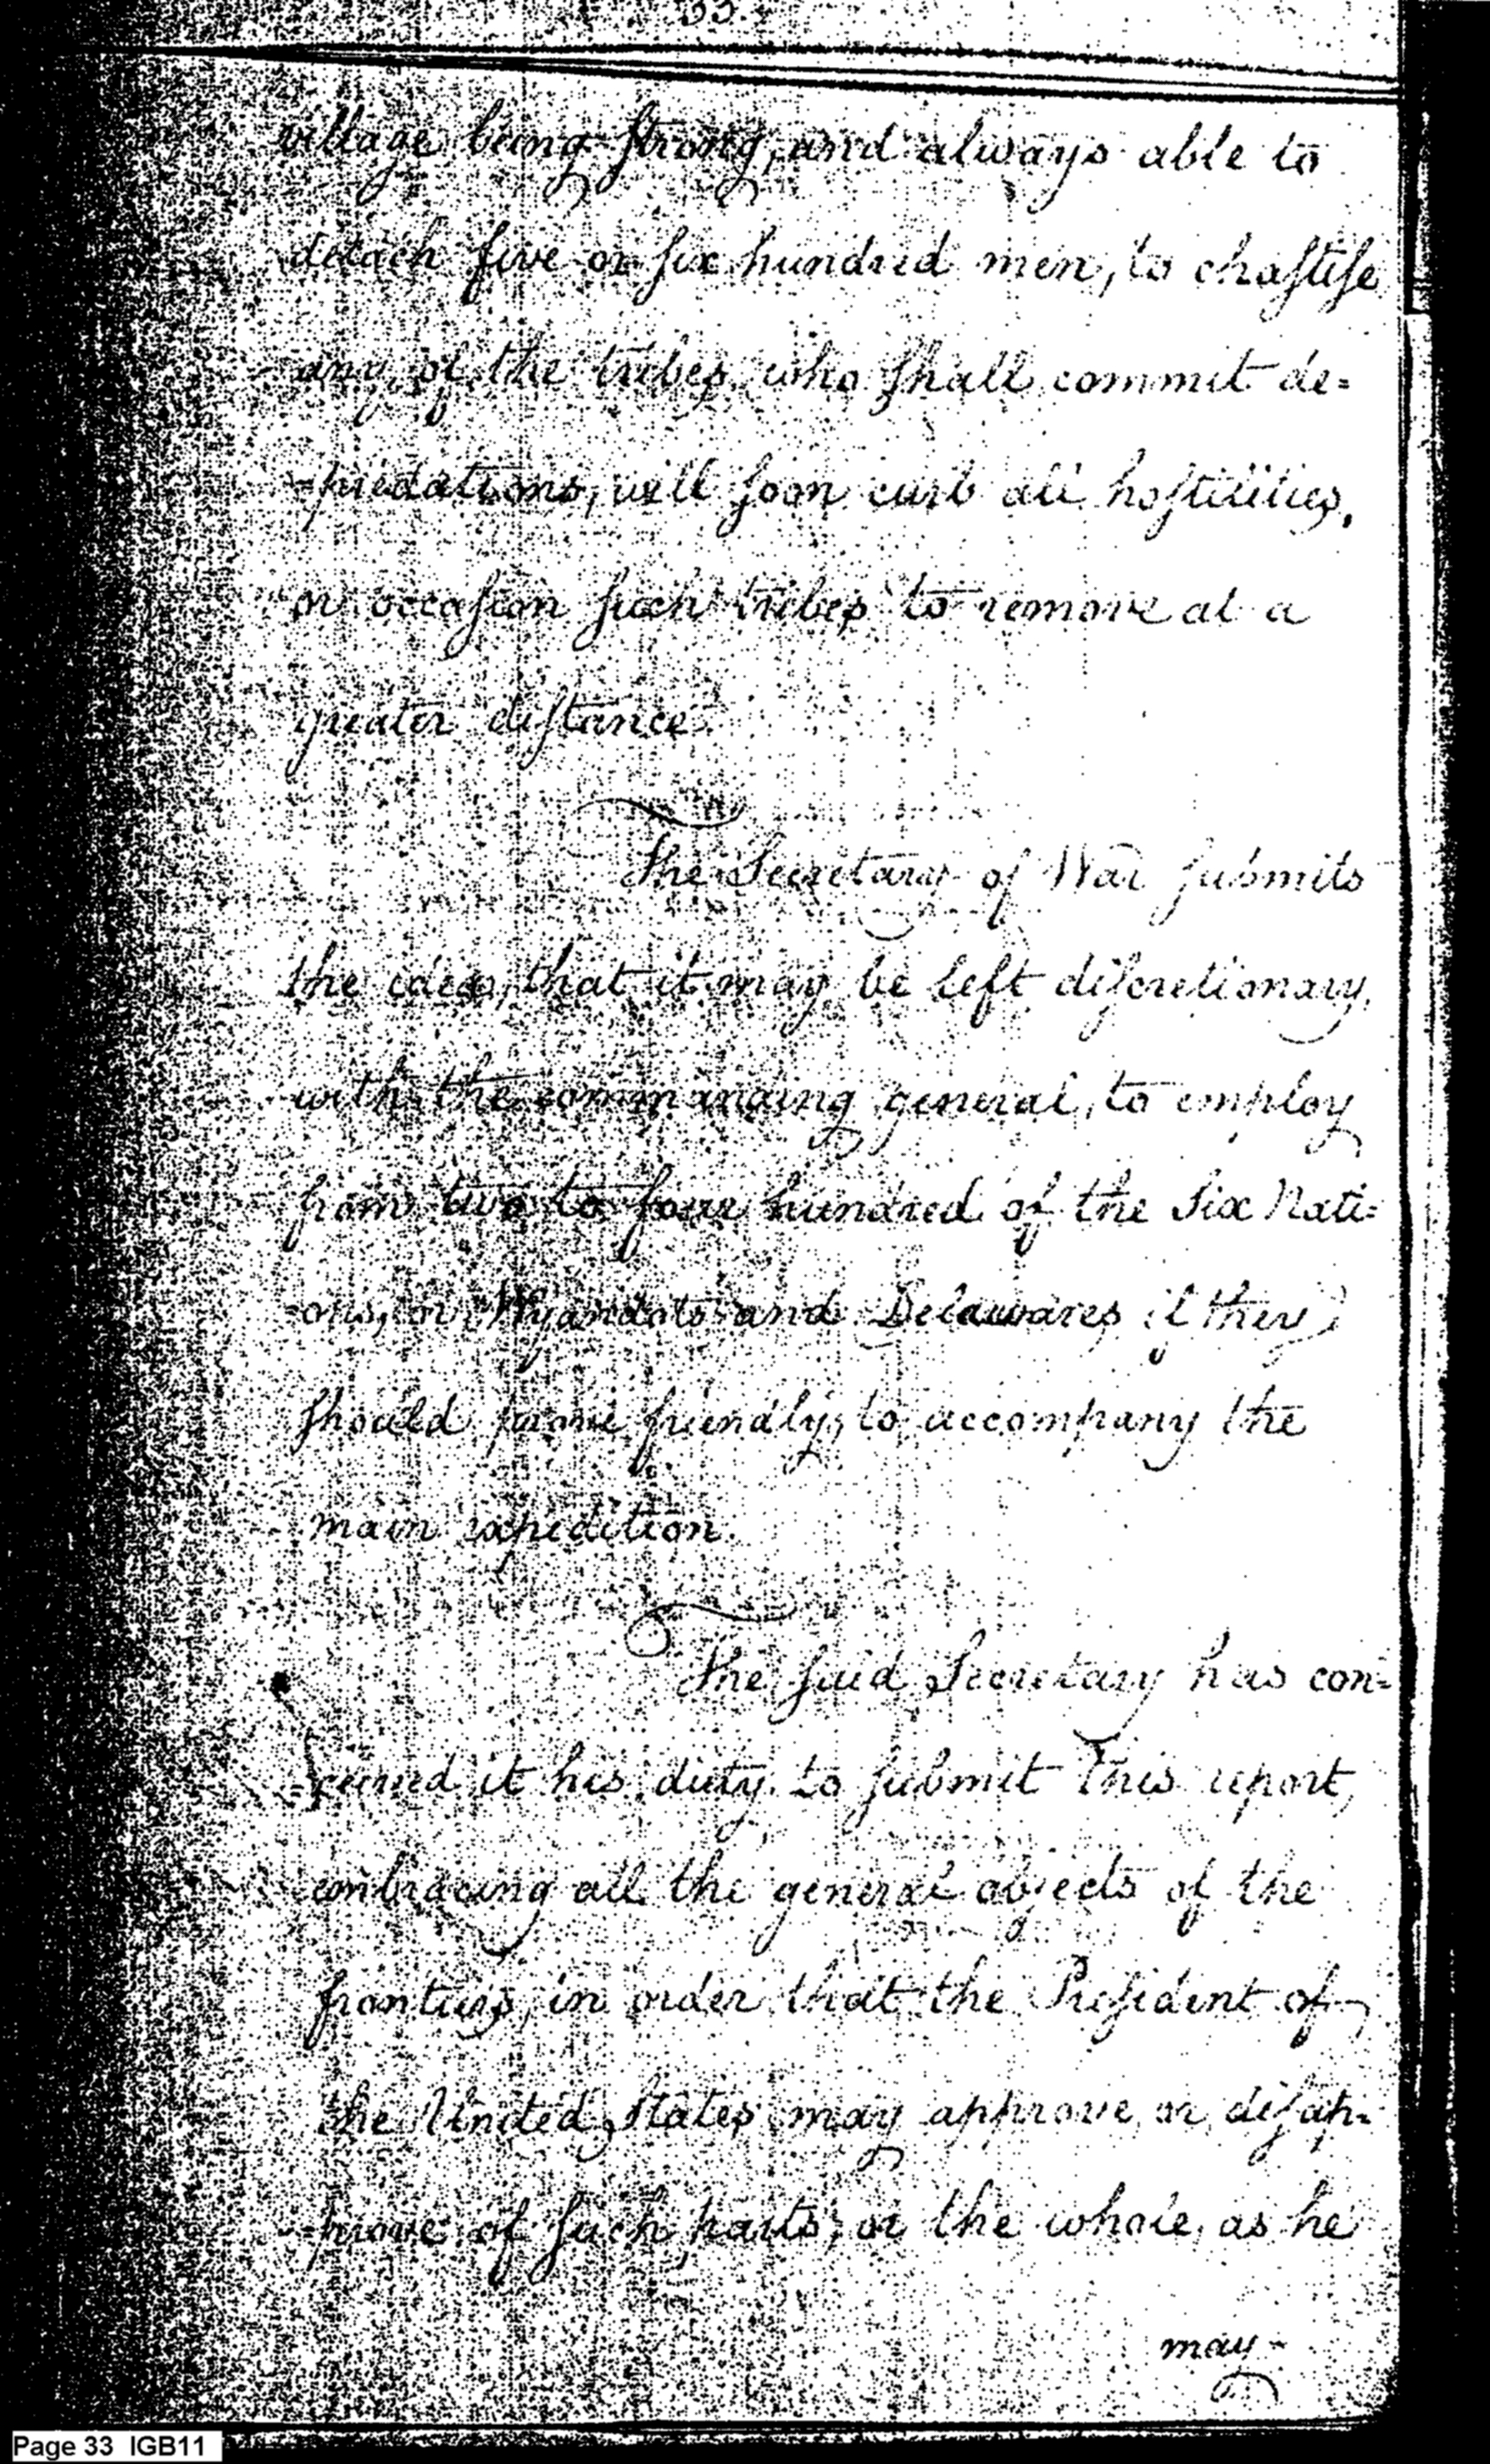 33.
village being strong, and always able to
detach five or six hundred men, to chastise
any of the tribes who shall commit de=
-predations, will soon curb all hostilities,
or occasion such tribes to remove at a
greater distance.
The Secretary of War submits
the idea, that it may be left discretionary,
with the commanding general, to employ
from two to four hundred of the Six Nati=
-ons, or Wyandots and Delawares if they
should prove friendly, to accompany the
main expedition.
The said Secretary has con=
-ceived it his duty to submit this report,
embracing all the general objects of the
frontiers, in order that the President of
the United States may approve, or disap=
-prove of such parts, or the whole, as he
may
Page 33 IGB11